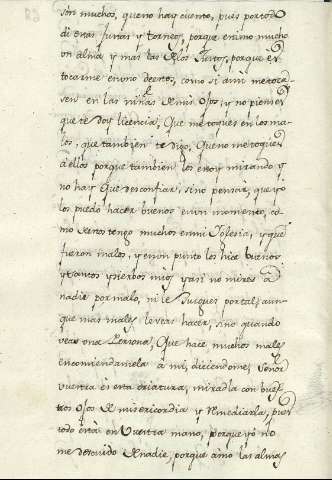 son muchos, que no hay cuento, pues por todo
di otras Juras y torneo, porque en mi mucho
son alma y mas las de los Justos, porque es
tocarme en uno de estos, como si a mi me toca
sen en las niñas de mis ojos, y no pienses
que te doy licencia, que me toques en los ma
los, que tambien te digo, que no me toques
a ellos porque tambien los estoy mirando y
no hay que desconfiar, sino pensar, que yo
los puedo hacer buenos en un momento, co
mo de esos tengo muchos en mi Iglesia, y que
fueron malos, y en un punto los hice buenos
y santos y siervos mios y asi no mires a
nadie por malo, ni le Juzgues por tal, aun
que mas males le veas hacer, sino quando
veas una Persona, que hace muchos males
encomiendamela a mi, diciendome, Señor
vuestra es esta criatura, miradla con vues
tros ojos de misericordia y remediarla, pues
todo está en vuestra mano, porque yo no
me descuido de nadie, porque amo las almas